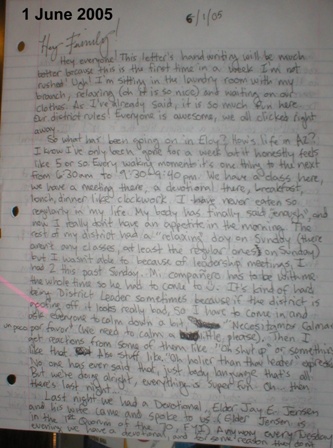 1 June 2005
6/1/05
Hey Family!
Hey everyone! This letter's handwriting will be much
better because this is the first time in a week I'm not
rushed. Ugh! I'm sitting in the laundry room with my
branch, relaxing (oh it is so nice) and waiting on our
clothes. As I've already said, it is so much fun here.
Our district rules! Everyone is awesome, we all clicked right
away.
So what has been going on in? How's life in
I know I've only been gone for a week but it honestly feels
like 5 or so. Every waking moment it's one thing to the next
from 6:30am to 9:30-9:40 pm. We have a class here,
we have a meeting there, a devotional there, breakfast,
lunch, dinner like clockwork. I have never eaten so
regularly in my life. My body has finally said "enough", and
now I really don't have an appetite in the morning. The
rest of my district had a "relaxing" day on Sunday (there
aren't any classes, at least the regular ones on Sunday)
but I wasn't able to because of leadership meetings. I
had 2 this past Sunday. Mi compañero has to be with me
the whole time so he had to come to. It's kind of hard
being District Leader sometimes because if the district is
goofing off it looks really bad, so I have to come in and
ask everyone to calm down a bit. "Necesitamos calmar
un poco por favor" (we need to calm a little, please). Then I
get reactions from some of them like "Oh shut up" or something
like that. stuff like, "Oh, holier than thou"
No one has ever said that, just body language that's all.
But we're doing alright, everything is super fun. Oh... then
there's last night.
Last night we had a Devotional, Elder Jay E. Jensen
and his wife came and spoke to us. (Elder Jensen is
in the Quorum of the 70, FYI) Anyway every Tuesday
evening we have a devotional, and